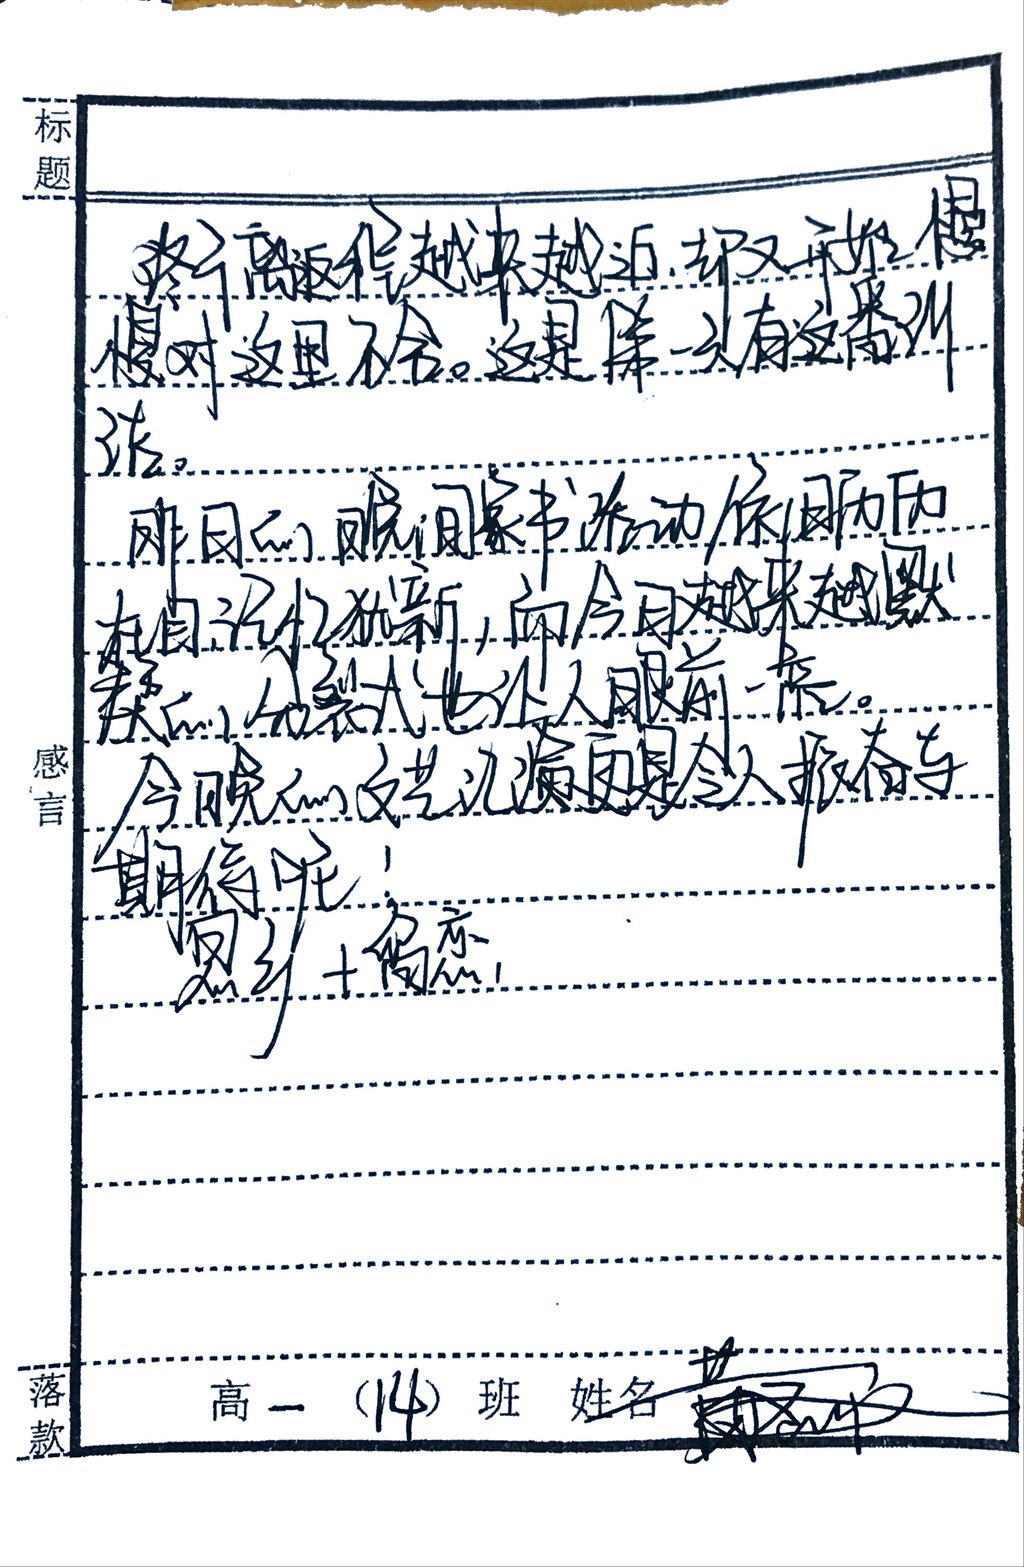 标题
终于离返程越来越近,却又开始慢
慢对这里不舍。这是第一次有这番
。
昨日的晚间家书活动依旧历历
在目记忆犹新,而今日越来越默
契的分裂式也让人眼前一亮。
感言
今晚的文艺汇演更是令人振奋与
期待呢!
思乡+留恋!
落款
高一(14)班 姓名 黄